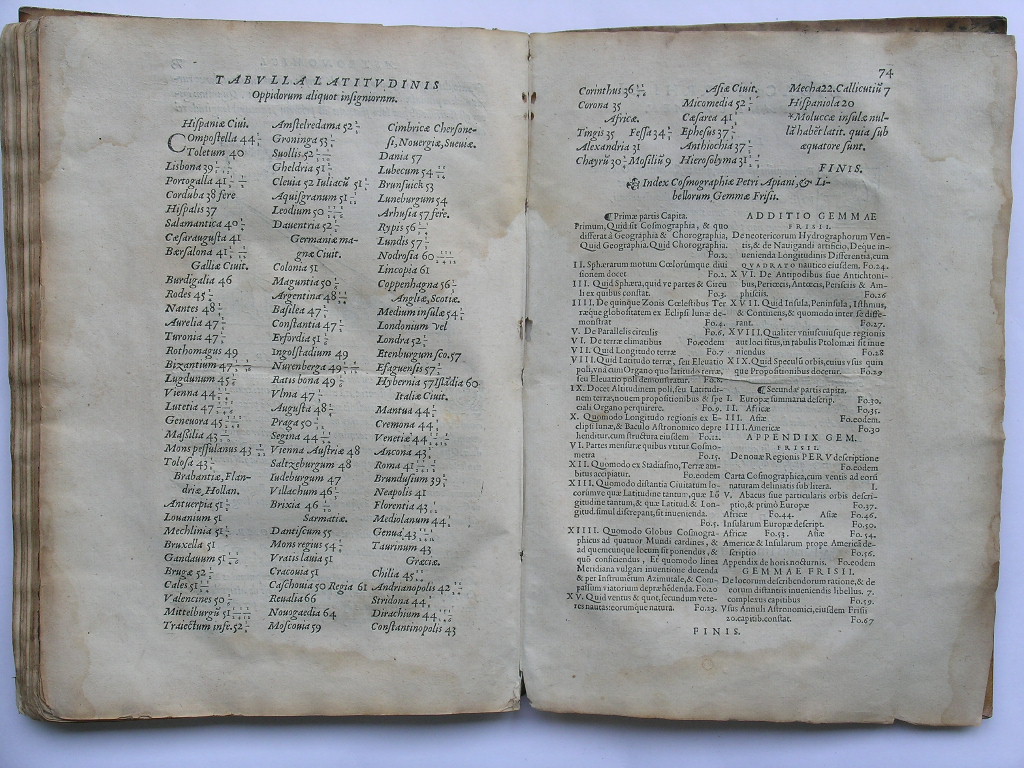 TABVLLA LATITVDINIS
Oppidorum aliquot insigniorum.
Hispaniæ Ciui.
COmpostella 44
Toletum 40
Lisbona 39
Portogalla 41
Corduba 38 fere
Hispalis 37
Salamantica 40
Cæsaraugusta 41
Barsalona 41
Galliæ Ciuit.
Burdigalia 46
Rodes 45
Nantes 48
Aurelia 47
Turonia 47
Rothomagus 49
Bizantium 47
Lugdunum 45
Vienna 44
Lutetia 47
Geneuora 45
Massilia 43
Mons pessulanus 43
Tolosa 43
Brabantiæ, Flan-
driæ, Hollan.
Antuerpia 51
Louanium 51
Mechlinia 51
Bruxella 51
Gandauum 51
Brugæ 52
Cales 51
Valencines 50
Mittelburgū 51
Traiectum infe. 52
Amstelredama 52
Groninga 53
Suollis 52
Gheldria 51
Cleuia 52 Iuliacū 51
Aquisgranum 51
Leodium 50
Dauentria 52
Germaniæ ma-
gnæ Ciuit.
Colonia 51
Maguntia 50
Argentina 48
Basilea 47
Constantia 47
Erfordia 51
Ingolstadium 49
Nurenberga 49
Ratisbona 49
Vlma 47
Augusta 48
Praga 50
Segina 44
Vienna Austriæ 48
Saltzeburgum 48
Iudeburgum 47
Villachum 46
Brixia 46
Sarmatiæ.
Dantiscum 55
Mons regius 54
Vratislauia 51
Cracouia 51
Caschouia 50 Regia 61
Reualia 66
Nouogardia 64
Moscouia 59
Cimbricæ Cherso­ne-
si, Nouergiæ, Sueuiæ.
Dania 57
Lubecum 54
Brunsuick 53
Luneburgum 54
Arhusia 57 fere.
Rypis 56
Lundis 57
Nodrosia 60
Lincopia 61
Coppenhagna 56
Angliæ, Scotiæ.
Medium insulæ 54
Londonium vel
Londra 52
Etenburgum sco. 57
Efaguensis 57
Hybernia 57 Islādia 60
Italiæ Ciuit.
Mantua 44
Cremona 44
Venetiæ 44
Ancona 43
Roma 41
Brundusium 39
Neapolis 41
Florentia 43
Mediolanum 44
Genua 43
Taurinum 43
Græciæ.
Chilia 45
Andrianopolis 42
Stridona 44
Dirachium 44
Constantinopolis 43
74
Corinthus 36
Corona 35
Africæ.
Tingis 35 Fessa 34
Alexandria 31
Chayrū 30 Mosiliū 9
Asiæ Ciuit.
Nicomedia 52
Cæsarea 41
Ephesus 37
Anthiochia 37
Hierosolyma 31
Mecha 22. Callicutiū 7
Hispaniola 20
*Moluccæ insulæ nul-
lā habēt latit. quia sub
æquatore sunt.
FINIS.
Index Cosmographiæ Petri Apiani, & Li-
bellorum Gemmæ Frisii.
¶Primæ partis Capita.
Primum, Quid sit Cosmographia, & quo
differat à Geographia & Chorographia,
Quid Geographia. Quid Chorographia.
Fo.2.
II. Sphærarum motum Cœlorúmque diui
sionem docet Fo.2.
III. Quid Sphæra, quid ve partes & Circu
li ex quibus constat. Fo.3.
IIII. De quinque Zonis Cœlestibus Ter
ræque globositatem ex Eclipsi lunæ de-
monstrat Fo.4.
V. De Parallelis circulis Fo.6.
VI. De terræ climatibus Fo.eodem
VII. Quid Longitudo terræ Fo.7
VIII. Quid Latitudo terræ, seu Eleuatio
poli, vna cum Organo quo latitudo terræ,
seu Eleuatio poli demonstratur. Fo.8.
IX. Docet Altitudinem poli, seu Latitudi-
nem terræ, nouem propositionibus & spe
ciali Organo perquirere. Fo.9.
X. Quomodo Longitudo regionis ex E-
clipsi lunæ, & Baculo Astronomico depre
henditur, cum structura eiusdem Fo.12.
VI. Partes mensuræ quibus vtitur Cosmo-
metra Fo.15.
XII. Quomodo ex Stadiasmo, Terræ am-
bitus accipitur. Fo.eodem
XIII. Quomodo distantia Ciuitatum lo-
corúmve quæ Latitudine tantum, quæ Lō
gitudine tantum, & quæ Latitud. & Lon-
gitud. simul discrepant, sit inuenienda.
XIIII. Quomodo Globus Cosmogra-
phicus ad quatuor Mundi cardines, &
ad quemcunque locum sit ponendus, &
quò conficiendus, Et quomodo linea
Meridiana vulgari inuentione ducenda
& per Instrumetum Azimutale, & Com-
passum viatorum deprehédenda. Fo.20
XV. Quid ventus & quot, secundum vete-
res nautas: eorumque natura. Fo.23.
ADDITIO GEMMAE
FRISII.
De neotericorum Hydrographorum Ven-
tis, & de Nauigandi artificio, Deque in-
uenienda Longitudinis Differentia, cum
QVADRATO nautico eiusdem. Fo.24.
XVI. De Antipodibus siue Antichtoni-
bus, Periœcis, Antœcis, Periscis & Am-
phisciis. Fo.26
XVII. Quid Insula, Peninsula, Isthmus,
& Continens, & quomodo inter se diffe-
rant. Fo.27.
XVIII. Qualiter vniuscuiusque regionis
aut loci situs, in tabulis Ptolomæi sit inue
niendus Fo.28
XIX. Quid Speculū orbis, cuius vsus quin
que Propositionibus docetur. Fo.29
¶Secundæ partis capita.
I. Europæ summaria descrip. Fo.30.
II. Africæ Fo.35.
III. Asiæ Fo.eodem.
IIII. Americæ Fo.30
APPENDIX GEM.
FRISII.
De nouæ Regionis PERV descriptione
Fo.eodem
Carta Cosmographica, cum ventis ad eorū
naturam delineatis sub litera. I.
V. Abacus siue particularis orbis descri-
ptio, & primò Europæ Fo.37.
Africæ Fo.44. Asiæ Fo.46.
Insularum Europæ descript. Fo.50.
Africæ Fo.53. Asiæ Fo.54.
Americæ & Insularum prope Americā de-
scriptio Fo.56.
Appendix de horis nocturnis. Fo.eodem
GEMMAE FRISII.
De locorum describendorum ratione, & de
eorum distantiis inueniendis libellus. 7.
completens capitibus Fo.59.
Vsus Annuli Astronomici, eiusdem Frisii
20. capitib. constat. Fo.67
FINIS.